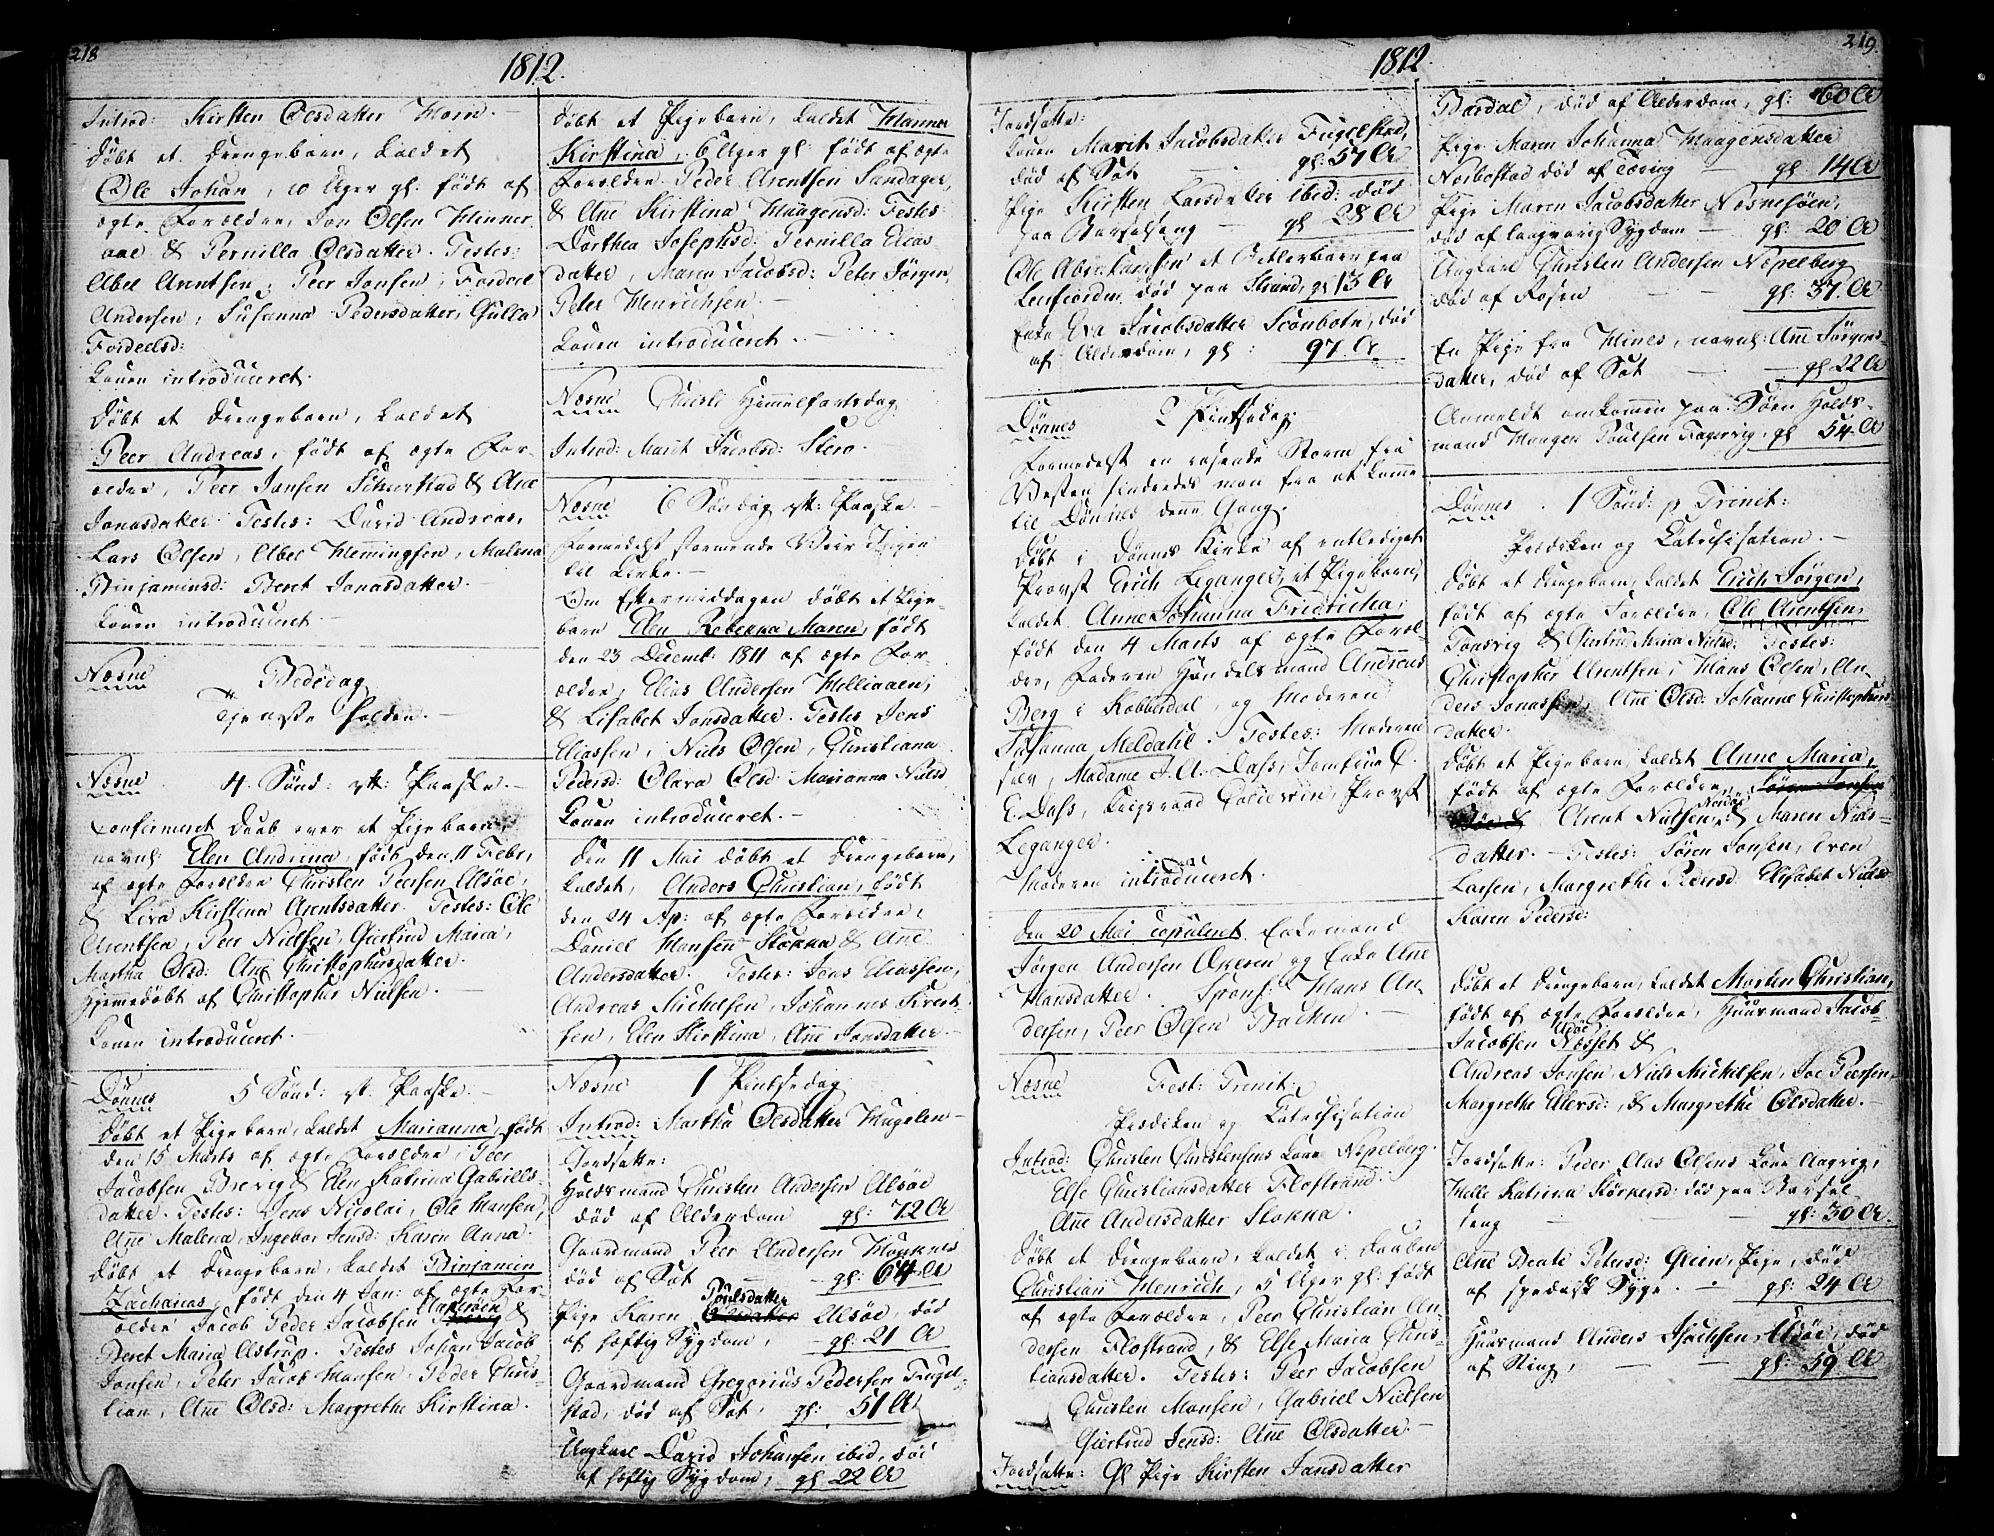 218
1812.
Introd: Kirsten Olsdatter Horn.
Døbt et Drengebarn, kaldet
Ole Johan, 10 Uger gl: født af
ægte Forældre, Jon Olsen Hinner
aae & Pernilla Olsdatter. Testes:
Abel Arentsen, Peer Jonsen, Fordeel
Andersen, Susanna Pedersdatter, Gulla
Fordeelsd:
Konen introduceret.
Døbt et Drengebarn, kaldet
Peer Andreas, født af ægte For-
ældre, Peer Jansen & Ane
Jonasdatter. Testes: David Andreas,
Lars Olsen, Abel Hemmingsen, Malena
Binjaminsd: Beret Jonasdatter.
Konen introduceret
Næsne Bededag
Tjeneste holden.
Næsne 4. Sønd: eft: Paaske.
Confirmeret Daab over et Pigebarn,
navnl: Elen Andrina, født den 11 Febr,
af ægte Forældre Christen Peersen Alsøe,
& Liva Kirstina Arentsdatter. Testes: Ole
Arentsen, Peer Nielsen, Giertrud Maria,
Martha Olsd: Ane Christophersdatter.
Hjemmedøbt af Christopher Nielsen.
Konen introduceret.
Dønnes 5 Sønd: eft: Paaske.
Døbt et Pigebarn, kaldet Marianna, født
den 15 Marts af ægte Forældre, Peer
Jacobsen Brevig & Elen Katrina Gabriels-
datter. Testes: Jens Nicolai, Ole Hansen,
Ane Malena, Ingebor Jensd: Karen Anna.
Døbt et Drengebarn, kaldet Binjamin
Zacharias, født den 4 Jan: af ægte For-
ældre Jacob Peder Jacobsen &
Beret Maria Astrup. Testes Johan Jacob
Jonsen, Peter Jacob Hansen, Peder Chris-
tian, Ane Olsd: Margrethe Kirstina.
Døbt et Pigebarn, kaldet Hanna
Kirstina, 6 Uger gl: født af ægte
Forældre Peder Arentsen Sandager,
& Ane Kirstina Haagensd: Testes
Dorthea Josephsd: Pernilla Elias
datter, Maren Jacobsd: Peter Jørgen,
Peter Henrichsen.
Konen introduceret.
Næsne Christi Himmelfartsdag.
Introd: Marit Jacobsd: Stero.
Næsne 6 Søndag eft: Paaske.
Formedelst stormende Veir Ingen
til Kirke.
Om Eftermiddagen døbt et Pige-
barn Elen Rebekka Maren, født
den 23 Decemb: 1811 af ægte For-
ældre, Elias Andersen,
& Lisabet Jonsdatter. Testes Jens
Eliassen, Niels Olsen, Christiana
Pedersd: Olava Olsd: Marianna Nielsd
Konen introduceret.
Den 11 Mai døbt et Drengebarn,
kaldet, Anders Christian, født
den 24 Ap: af ægte Forældre,
Daniel Hansen Stokka & Ane
Andersdatter. Testes: Jens Eliassen,
Andreas Michelsen, Johannes Sivert
sen, Elen Kirstina, Ane Jonsdatter.
Næsne 1 Pintsedag
Introd: Martha Olsdatter Hugelen
Jordfatte:
Holdsmand Christen Andersen Alsøe
død af Alderdom gl: 72 Ar
Gaardmand Peer Andersen
død af Sot gl: 64 Ar
Pige Karen Poulsdatter Alsøe død
af hæftig Sygdom, gl: 21 Ar
Gaardmand Gregorius Pedersen Fugel-
stad, død af Sot, gl: 51 Ar
Ungkarl David Johansen ibid, død
af hæftig Sygdom, gl 22 Ar
1812. 219.
Jordfatte:
Konen Marit Jacobsdatter Fugelstad,
død af Sot gl: 57 Ar
Pige Kirsten Larsdatter ibid: død
paa Barselseng gl 28 Ar
Ole et Betlerbarn fra
Leirfiorden død paa Strand, gl 13 Ar
Enke Eva Jacobsdatter, død
af Alderdom, gl: 97 Ar
Dønnes 2 Pintsedag.
Formedelst en rasende Storm fra
Vesten hindredes man fra at komme
til Dønnes denne Gang.
Døbt i Dønnes Kirke af entlediget
Provst Erich Leganger, et Pigebarn,
kaldet Anne Johanna Fredricka,
født den 4 Marts af ægte Foræl-
dre, Faderen Handelsmand Andreas
Berg i Kobberdal, og Moderen
Susanna Meldahl. Testes: Moderen
selv, Madame J. A. Dass, Jomfrue C.
E. Dass, Krigsraad Coldevin, Provst
Leganger.
Moderen introduceret.
Den 20 Mai copuleret Enkemand
Jørgen Andersen Økeren og Enke Ane
Hansdatter. Spons: Hans An-
dersen, Peer Olsen Backen.
Næsne Fest: Trinit:
Prædiken og Catechisation
Introd: Christen Christensens Kone Nepelberg.
Else Christiansdatter Flostrand.
Ane Andersdatter Stokka.
Døbt et Drengebarn, kaldet i Daaben
Christian Henrich, 5 Uger gl: født
af ægte Forældre, Peer Christian An-
dersen Flostrand, & Else Maria Chris-
tiansdatter. Testes: Peer Jacobsen
Christen Hansen, Gabriel Nielsen
Giertrud Jensd: Ane Olsdatter.
Jordfatte: Gl Pige Kirsten Jansdatter
Bardal, død af Alderdom, gl: 60 Ar
Pige Maren Johanna Haagensdatter
død af Tæring gl: 14 Ar
Pige Maren Jacobsdatter Næsnesøen,
død af langvarig Sygdom gl: 20 Ar
Ungkarl Christen Andersen Nepelberg
død af Rosen gl: 37 Ar
En Pige fra Hines, navnl: Ane Jørgens
datter, død af Sot gl 22 Ar
Anmeldt omkommen paa Søen Holds-
mand Haagen Poulsen Fagervig, gl 54 Ar
Dønnes 1 Sønd: p Trinit:
Prædiken og Catechisation.
Døbt et Drengebarn, kaldet Erich Jørgen,
født af ægte Forældre, Ole Arentsen,
Tonsvig & Giertrud Maria Nielsd: Testes:
Christopher Arentsen, Hans Olsen, An-
ders Jonassen, Ane Olsd: Johanne Christophers
datter.
Døbt et Pigebarn, kaldet Anne Maria,
født af ægte Forældre,
Arent Nielsen & Maren Niels-
datter. Testes: Søren Jonsen, Iven
Larsen, Margrethe Pedersd Elisabet Nielsd
Karen Pedersd:
Døbt et Drengebarn, kaldet Morten Christian,
født af ægte Forældre, Huusmand Jacob
Jacobsen Næsset &
Andreas Jonsen, Niels Michelsen, Joe Peersen,
Margrethe Ellersd:, & Margrethe Olsdatter.
Jordfatte: Peder Clas Olsens Kone Aagvig,
Helle Katrina død paa Barsel
seng gl: 30 Ar.
Ane Beate Petersd: Grien, Pige, død
af spedalsk Syge. gl: 24 Ar
Huusmand Anders, død
af Sting, gl: 59 Ar